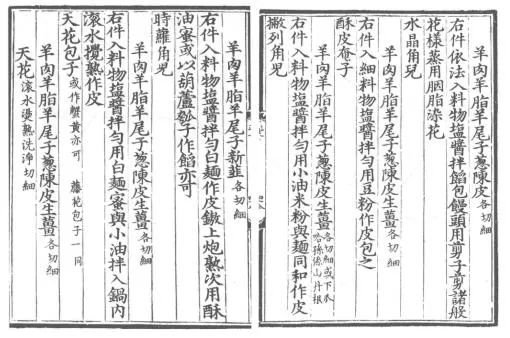 羊肉羊脂羊尾子葱陳皮生薑各切細
右件依法入料物塩醬拌餡包饅頭用剪子剪諸般
花樣蒸用胭脂染花
水晶角兒
羊肉羊脂羊尾子葱陳皮生薑各切細
右件入細料物塩醬拌勻用豆粉作皮包之
酥皮奄子
羊肉羊脂羊尾子葱陳皮生薑各切細或下瓜哈孫係山丹根
右件入料物塩醬拌勻用小油米粉與麵同和作皮
撇列角兒
羊肉羊脂羊尾子新韮各切細
右件入料物塩醬拌勻白麵作皮鏊上炮熟次用酥
油蜜或以葫蘆瓠子作餡亦可
時蘿角兒
羊肉羊脂羊尾子葱陳皮生薑各切細
右件入料物塩醬拌勻用白麵蜜與小油拌入鍋內
滾水攪熟作皮
天花包子或作蟹黄亦可 藤花包子一同
羊肉羊脂羊尾子葱陳皮生薑各切細
天花滾水燙熟洗淨切細